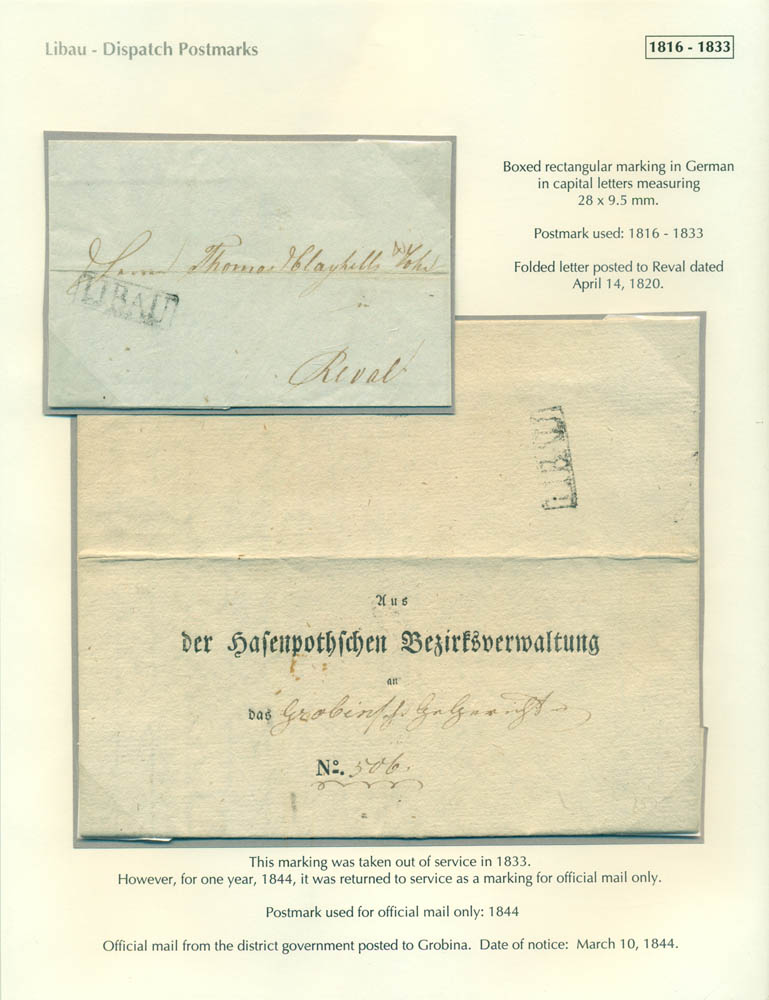 Libau - Dispatch Postmarks
1816 - 1833
Boxed rectangular marking in German
in capital letters measuring
28 x 9.5 mm.
Postmark used: 1816 - 1833
Folded letter posted to Reval dated
April 14, 1820.
Herrn Thomas Clayhills
in
Reval
LIBAU
LIBAU
Aus
der Hasenpothschen Bezirksverwaltung
an
das Grobinsche
No. 506.
This marking was taken out of service in 1833.
However, for one year, 1844, it was returned to service as a marking for official mail only.
Postmark used for official mail only: 1844
Official mail from the district government posted to Grobina.  Date of notice:  March 10, 1844.